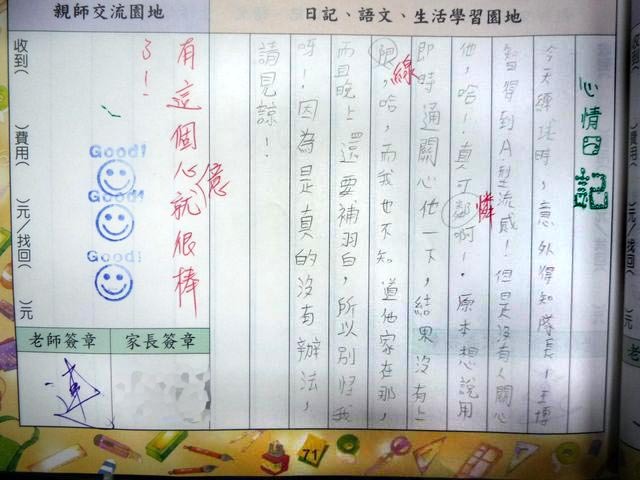 日記、語文、生活學習園地
親師交流園地
心情日記
今天練球時,意外得知隊長,王博
智得到A型流感!但是沒有人關心
他,哈!真可鄰啊!原本想說用
憐
即時通關心他一下,結果沒有上
限,哈,而我也不知道他家在那,
線
而且晚上還要補羽白,所以別怪我
呀!因為是真的沒有辦法,
請見諒!
有這個心就很棒
億
了!
Good!
Good!
Good!
收到( )費用( )元/找回( )元
家長簽章
老師簽章
71